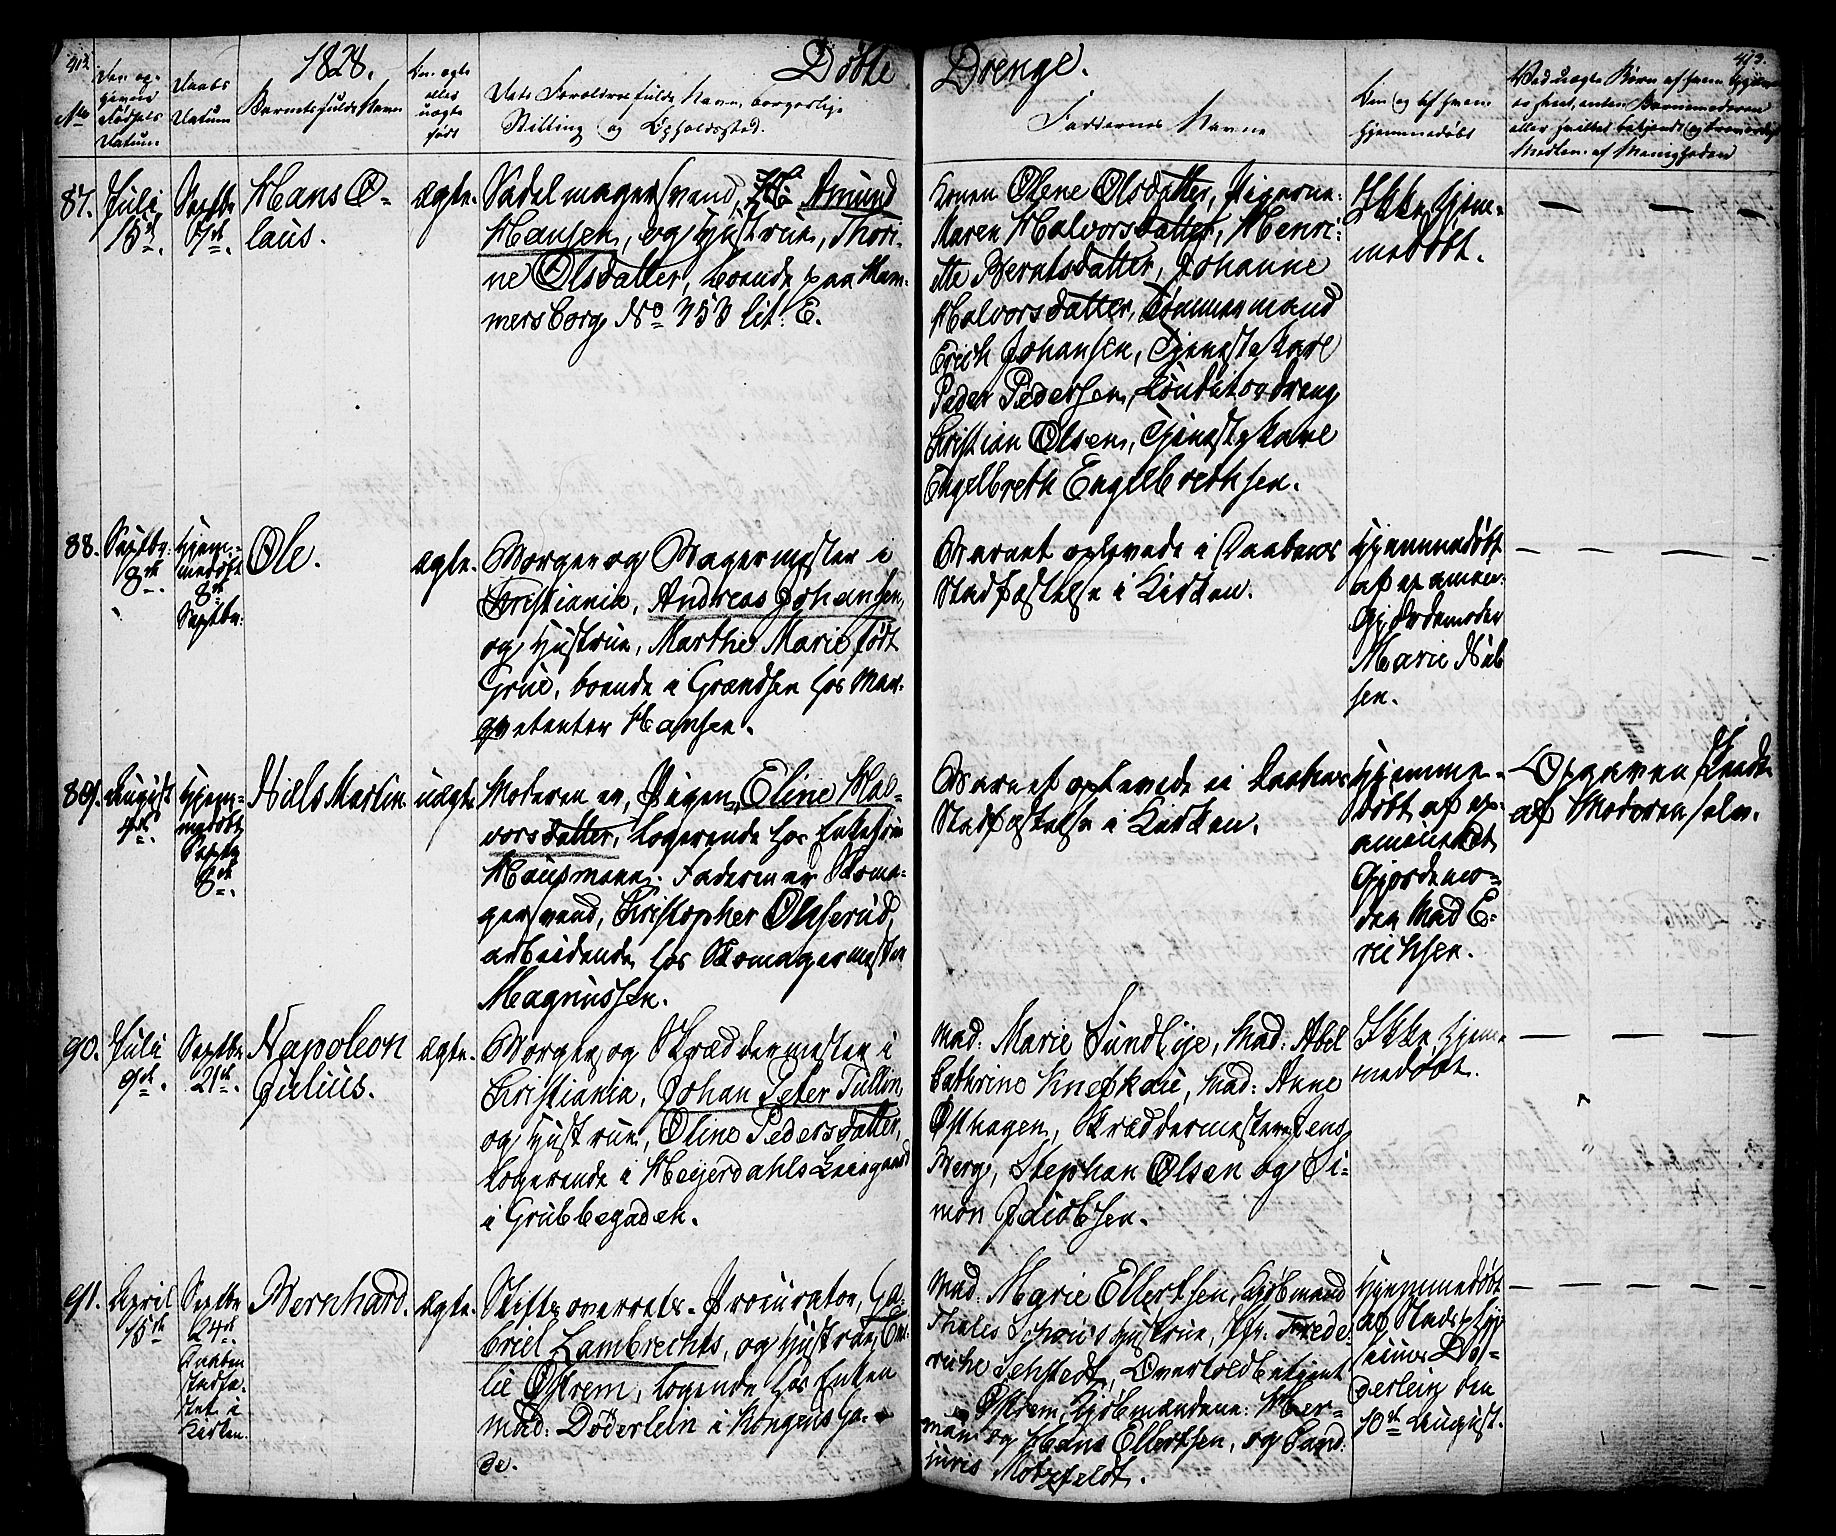 412.
1828.
Døbte
Drenge.
413.
No
Den op-
givne
Fødsels
Datum
Daabs
Datum
Barnets fulde Navn
Om ægte
eller
uægte
født
Dets Forældres fulde Navn, borgerlige
Stilling og Opholdssted.
Faddernes Navne
Om og af hvem
hjemmedøbt
Ved uægte Børn af hvem Opgaven
er skeet, enten Barnemoderen
eller hvilket bekjendt og troværdigt
Medlem af Menigheden
87.
Juli
15de.
Septbr
7de.
Hans O-
laus.
ægte.
Sadelmagersvend, Amund
Hansen, og Hustrue, Thori-
ne Olsdatter, boende paa Ham-
mersborg No 353 lit: E.
Konen Olene Olsdatter, Pigerne:
Maren Halvorsdatter, Henri-
ette Berntsdatter, Johanne
Halvorsdatter, Tømmermand
Erich Johansen, Tjenestekarl
Peder Pedersen, Konditordreng
Christian Olsen, Tjenestekarl
Engelbreth Engelbrethsen.
Ikke hjem-
medøbt.
88.
Septbr.
8de.
Hjem-
medøbt
8de
Septbr.
Ole.
ægte.
Borger og Bagermester i
Christiania, Andreas Johansen,
og Hustrue, Marthe Marie født
Grue, boende i Grændsen hos Mar-
qvetenter Hansen.
Barnet oplevede ei Daabens
Stadfæstelse i Kirken.
Hjemmedøbt
af examen:
Gjordemoder
Marie Niel-
sen.
89.
August
4de.
Hjem-
medøbt
Septbr
8de.
Niels Martin
uægte
Moderen er, Pigen, Eline Hal-
vorsdatter, logerende hos Enkefrue
Hausmann. Faderen er Skoma-
gersvend, Christopher Olsserud,
arbeidende hos Skomagermester
Magnussen.
Barnet oplevede ei Daabens
Stadfæstelse i Kirken.
Hjemme-
døbt af ex-
amineret
Gjordemo-
der Mad E-
richsen.
Opgaven skeede
af Moderen selv.
90.
Juli
9de.
Septbr
21de.
Napoleon
Julius.
ægte.
Borger og Skræddermester i
Christiania, Johan Peter Tullin,
og Hustrue, Oline Pedersdatter,
logerende i Heyerdahls Leiegaard
i Grubbegaden.
Mad: Marie Sundbye, Mad: Abel
Cathrine Knefkau, Mad: Anne
Østhagen, Skræddermesterne Jens
Berg, Stephan Olsen og Si-
mon Jacobsen.
Ikke hjem-
medøbt.
91.
April
15de
Septbr
24de.
Daaben
stadfæ-
stet i
Kirken.
Bernhard.
ægte.
Stiftsoverrets-Procurator, Ga-
briel Lambrechts, og Hustrue, Em-
lie Østrem, logerende hos Enken
Mad: Døderlein i Kongens Ga-
de.
Mad: Marie Ellertsen, Kjøbmand
Thales Schous Hustrue, Jfr. Frede-
rikke Sehstedt, Overtoldbetjent
Østrem, Kjøbmændene: Her-
man og Hans Ellertsen, og Cand:
juris Motzfeldt.
Hjemmedøbt
af Stadsphy-
sicus Dø-
derlein den
10de August.